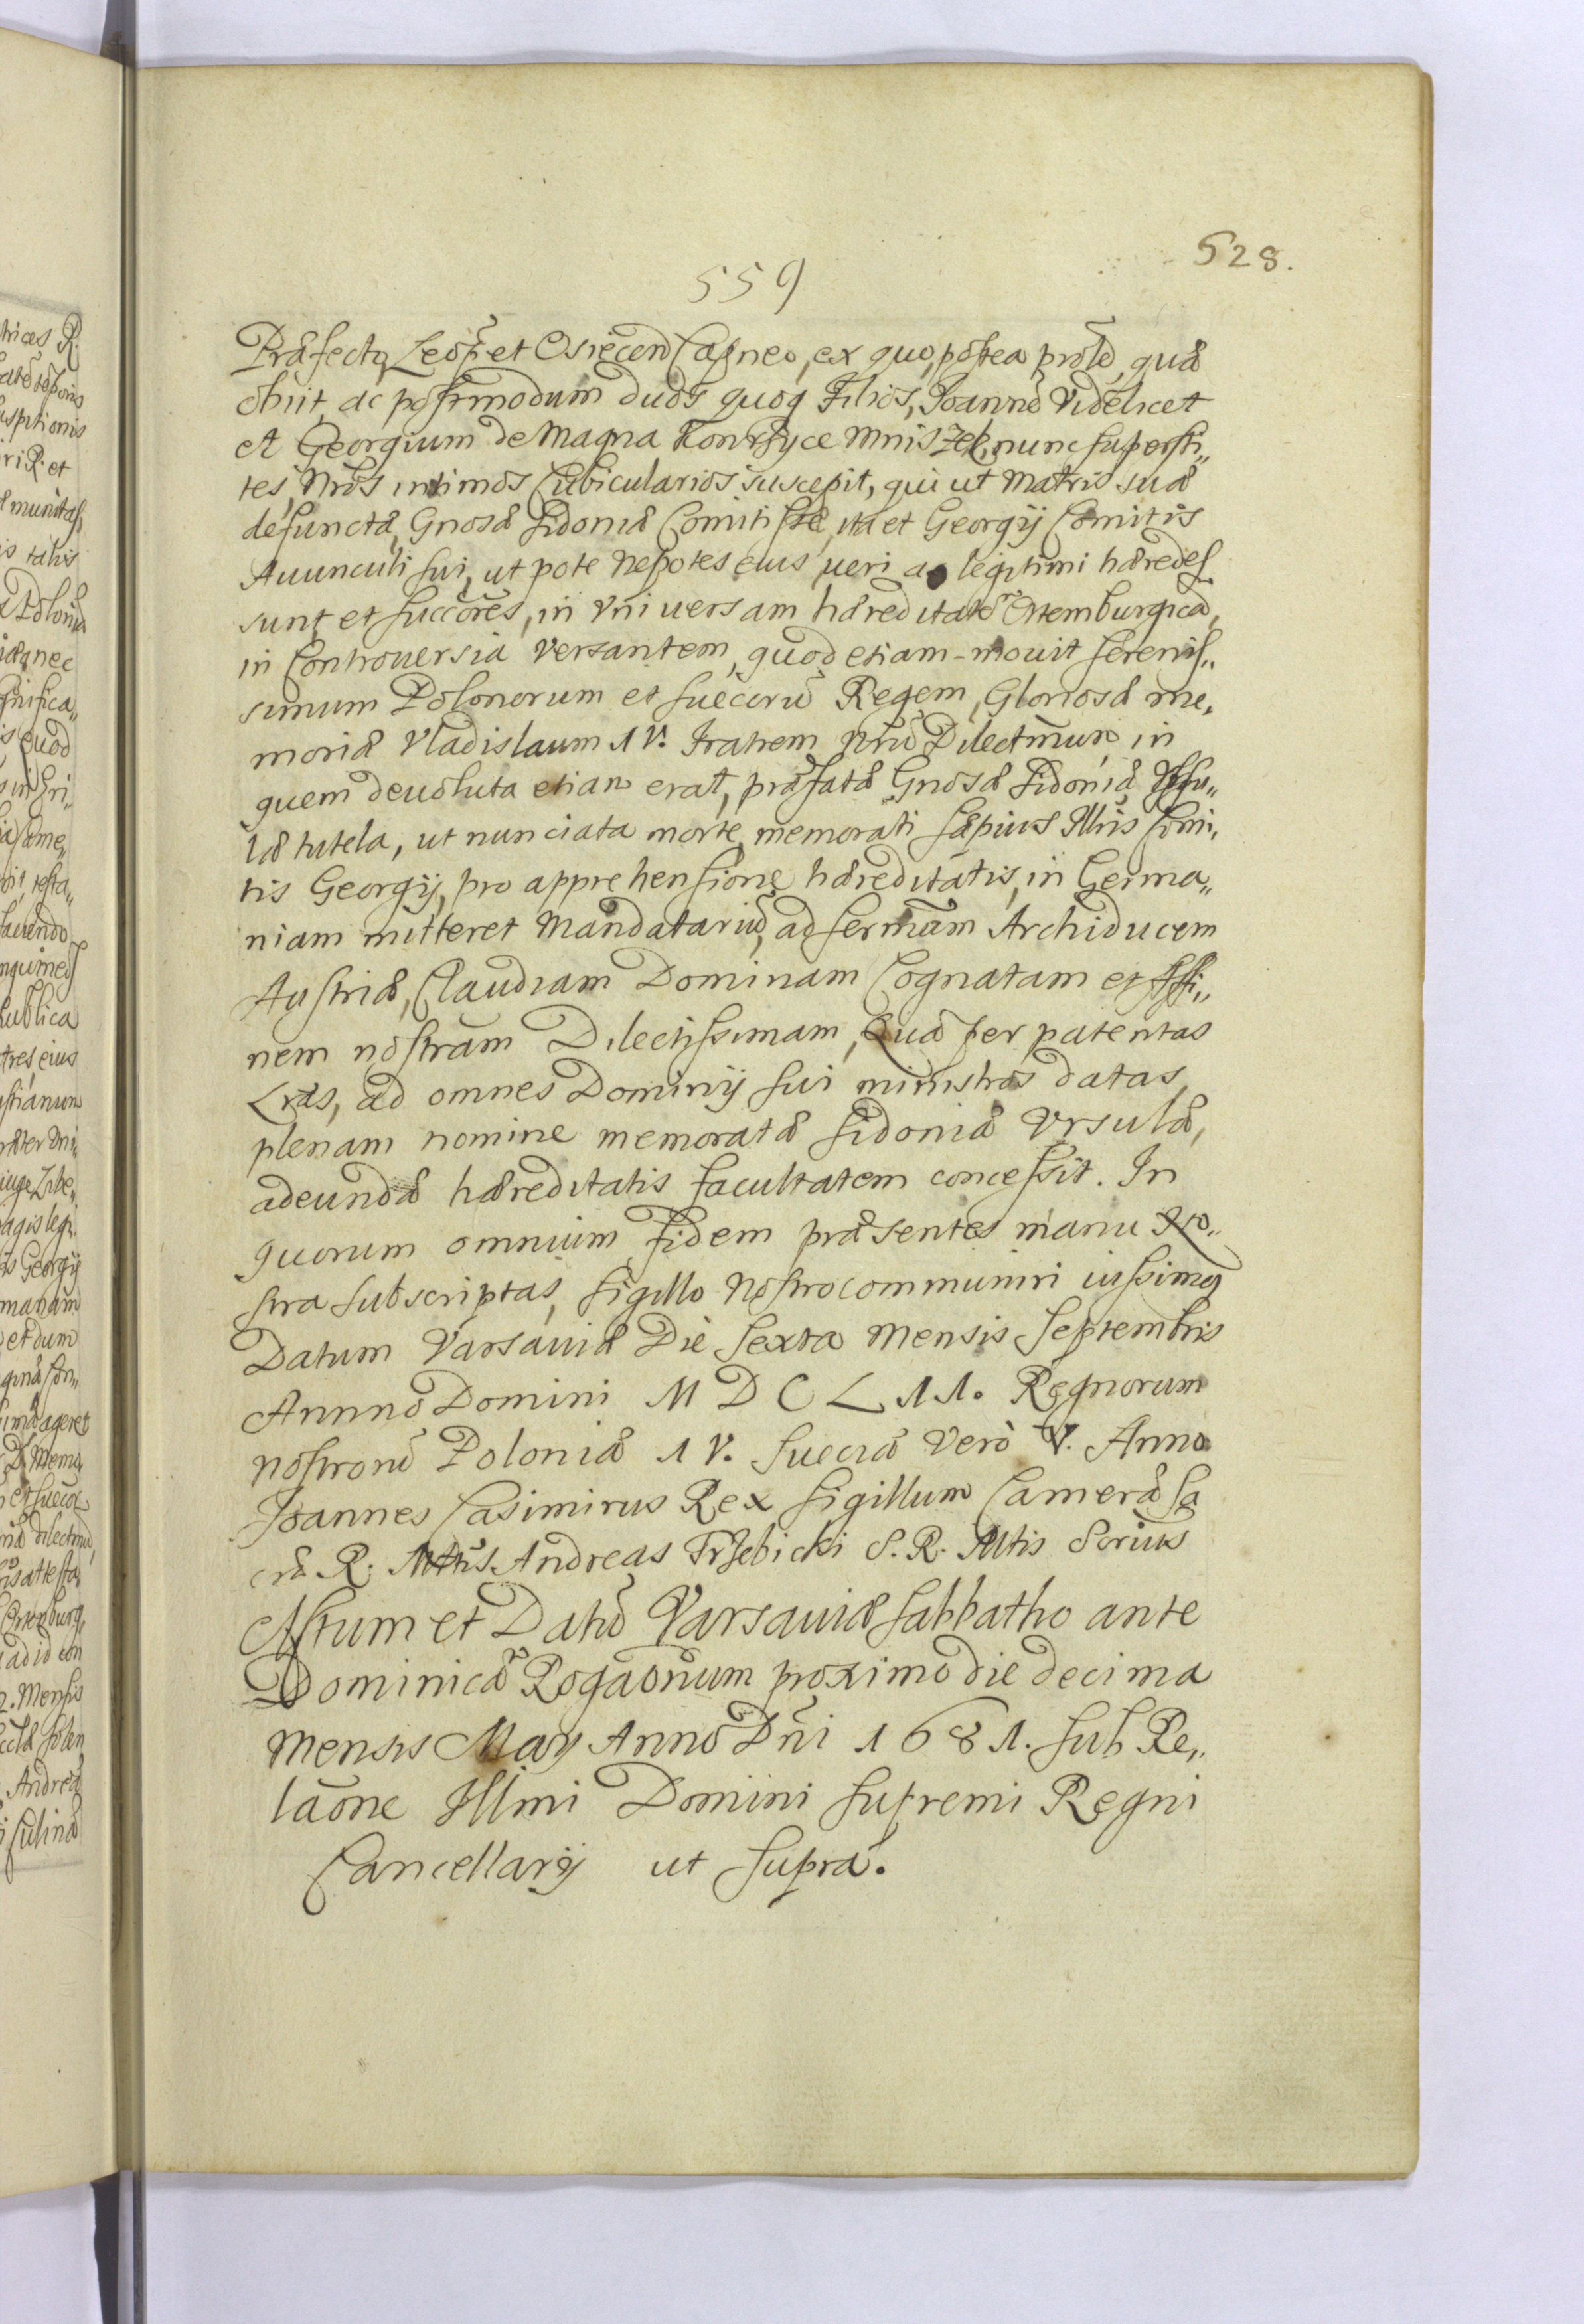 528.
559
Præfectq Leõp. et Osiecen Capneo, ex quo, postea prolẽ, quæ
obiit, ac postmodum duos quoq Filios, Joannẽ Videlicet
et Georgium de Magna Konczyce Mniszek, nunc supersti„
tes, Nrõs intimos Cubicularios suscepit, qui ut Matris suæ
defunctæ, Gnosæ Sidoniæ Comitissæ, ita et Georgij Comitis
Auunculi sui, ut pote Nepotes eius ueri ac legitimi hæredes
sunt et succõres, in Vniuersam hæreditatẽ Ortemburgicã,
in Controuersia Versantem, quod etiam mouit Serenis„
simum Polonorum et Suecorũ Regem, Gloriosæ me„
moriæ Vladislaum IV. Fratrem Nrũ Dilectm̃um, in
quem deuoluta etiam erat, præfatæ Gnosæ Sidoniæ Vrsu„
læ tutela, ut nunciata morte, memorati sæpius Illris Comi„
tis Georgij, pro apprehensione hæreditatis, in Germa„
niam mitteret Mandatariũ, ad Sermãm Archiducem
Austriæ, Claudiam Dominam Cognatam et Affi„
nem nostram Dilectissimam, Quæ per patentas
Lrãs, ad omnes Dominij sui ministros datas,
plenam nomine memoratæ Sidoniæ Vrsulæ,
adeundæ hæreditatis facultatem concessit. In
quorum omnium Fidem præsentes manu No„
stra subscriptas, sigillo Nostro communiri iussimq
Datum Varsauiæ Die Sexta Mensis Septembris
Annno Domini M D C L I I. Regnorum
nostrorũ Poloniæ IV. Sueciæ Verò V. Anno
Joannes Casimirus Rex Sigillum Cameræ Sa
cræ R. Mttis Andreas Trzebicki S. R. Mtis Scrius
Actum et Datũ Varsauiæ Sabbatho ante
Dominicã Rogãonum proximo die decima
Mensis May Anno Dñi 1681. sub Re„
lãone Illmi Domini Supremi Regni
Cancellarij ut supra.